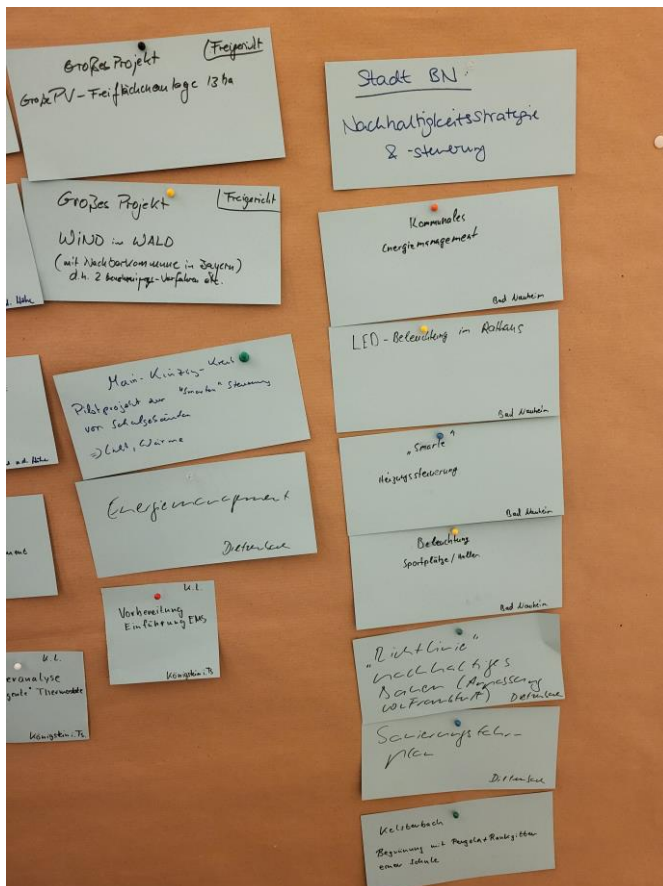 Großes Projekt
Freigericht
Große PV-Freiflächenanlage 13 ha
Großes Projekt
Freigericht
WIND im WALD
(mit Nachbarkommune in Bayern)
d.h. 2 Verfahren etc.
d. Höhe
Main-Kinzig-Kreis
Pilotprojekt zur "smarten" Steuerung
von Schulgebäuden
=> Licht, Wärme
a.d. Höhe
Energiemanagement
Dietzenbach
K.L.
Vorbereitung
Einführung EMS
Königstein i. Ts.
K.L.
eranalyse
gente" Thermostate
Königstein i. Ts.
Stadt BN:
Nachhaltigkeitsstrategie
& -steuerung
Kommunales
Energiemanagement
Bad Nauheim
LED-Beleuchtung im Rathaus
Bad Nauheim
"Smarte"
Heizungssteuerung
Bad Nauheim
Beleuchtung
Sportplätze/Hallen
Bad Nauheim
"Richtlinie"
nachhaltiges
Bauen (Anpassung
von Frankfurt)
Dietzenbach
Sanierungsfahr-
plan
Dietzenbach
Kelsterbach
Begrünung mit Pergola + Rankgitter
einer Schule